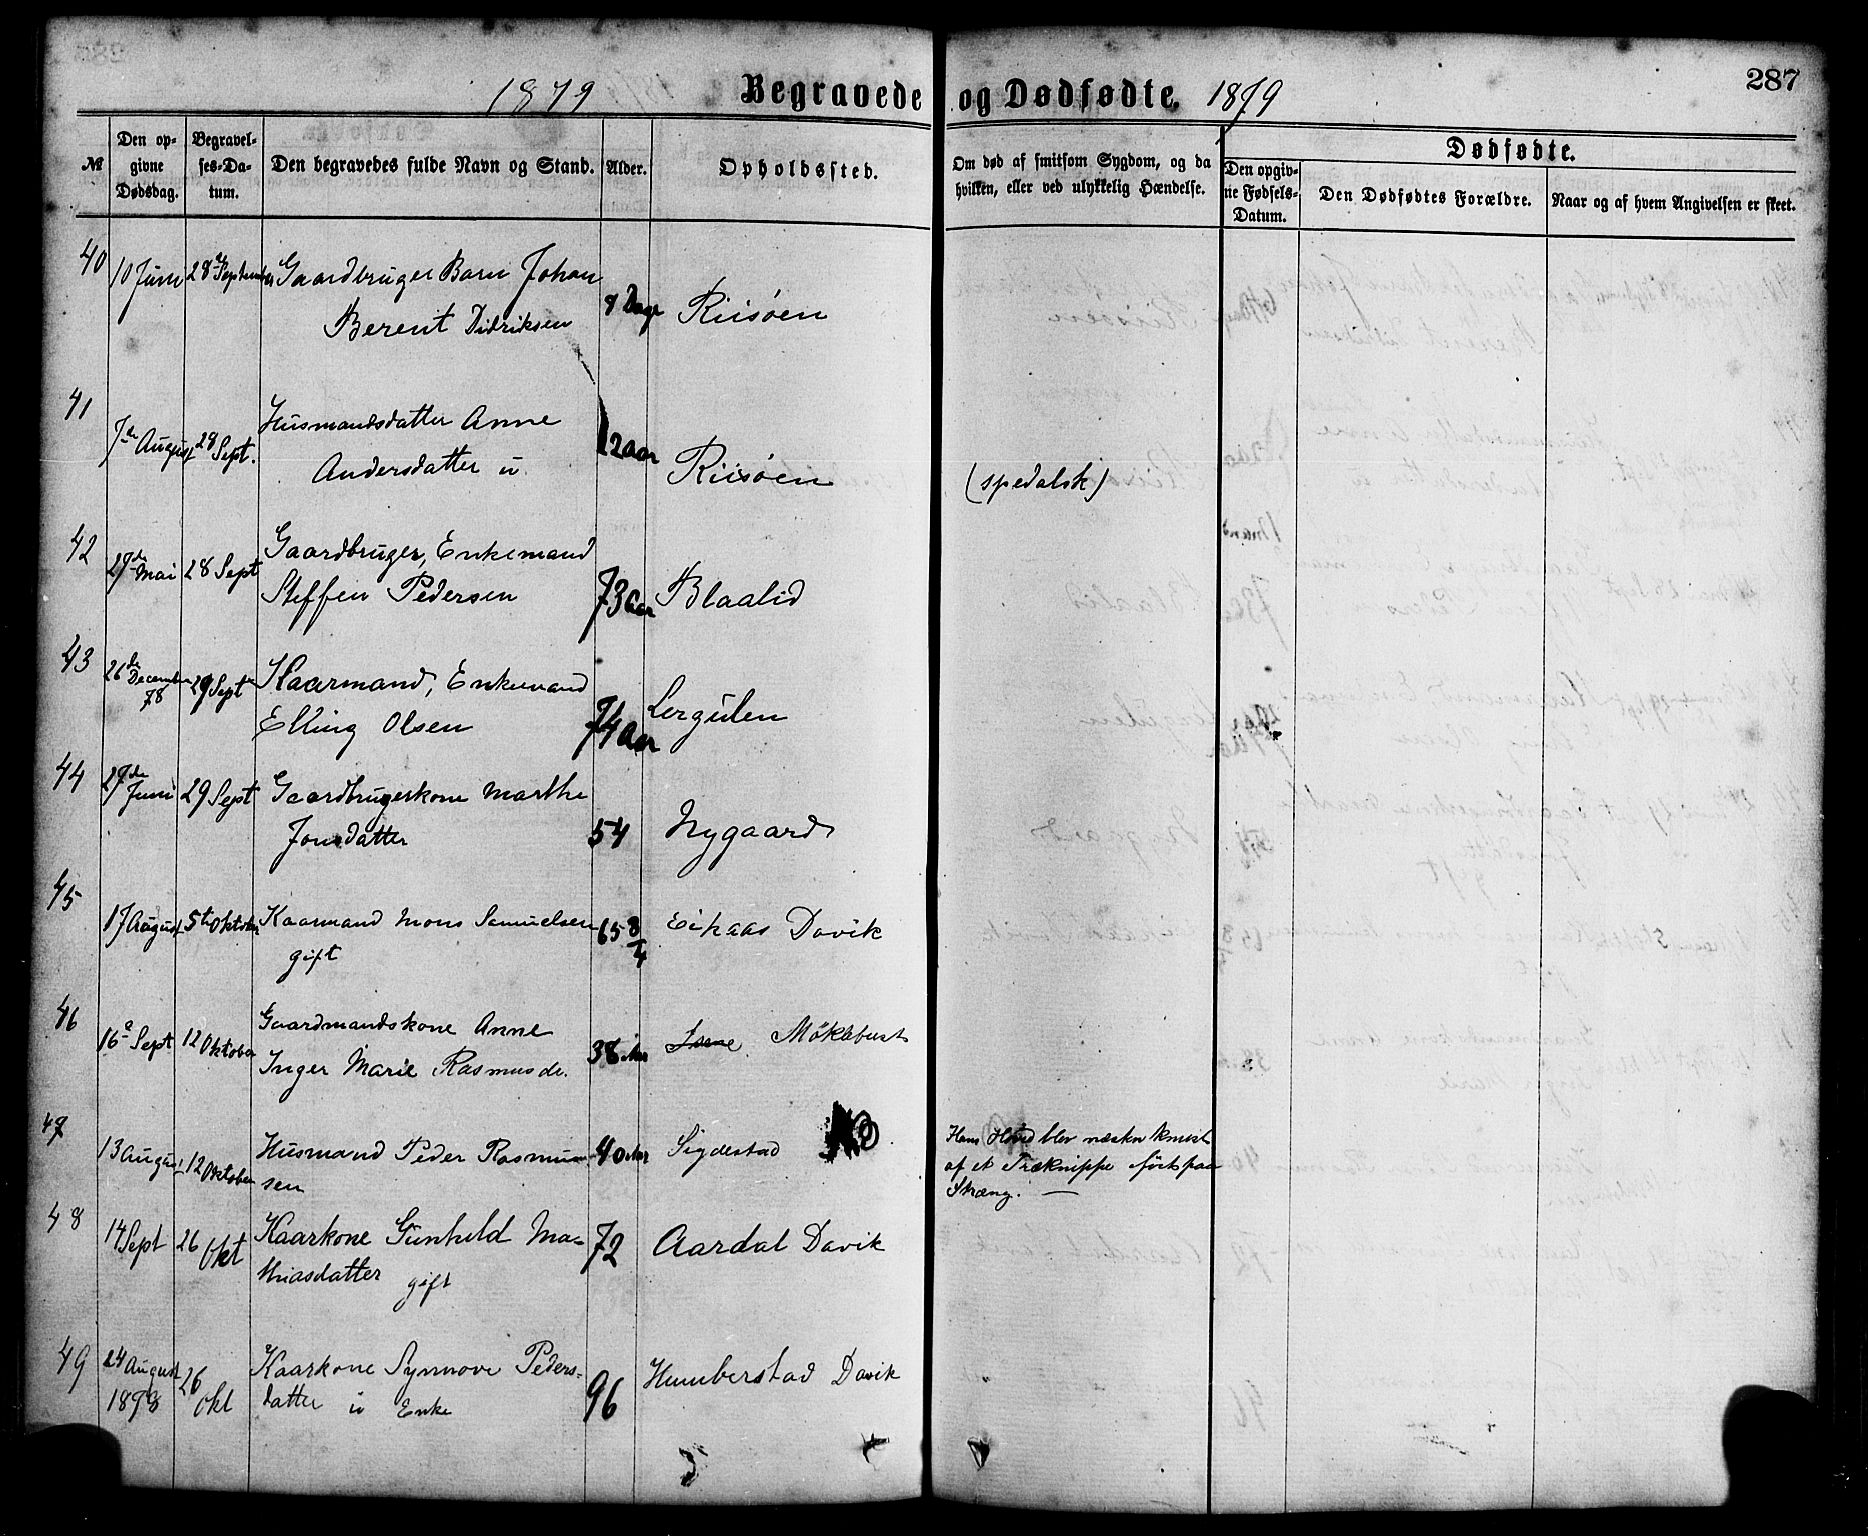 287
1879 Begravede og Dødfødte. 1879
№ Den opgivne Dødsdag. Begravelses-Datum. Den begravedes fulde Navn og Stand. Alder. Opholdssted. Om død af smitsom Sygdom, og da hvilken, eller ved ulykkelig Hændelse. Dødfødte. Den opgivne Fødsels-Datum. Den Dødfødtes Forældre. Naar og af hvem Angivelsen er skeet.
40 10 Juni 28 September Gaardbruger Barn Johan
Berent Didriksen 8 Dage Riisöen
41 7de August 28 Sept. Huusmandsdatter Anne
Andersdatter u 12 aar Riisöen (spedalsk)
42 27de Mai 28 Sept Gaardbruger, Enkemand
Steffen Pedersen 73 aar Blaalid
43 26de December 78 29 Sept Kaarmand, Enkemand
Elling Olsen 74 Aar Lergulen
44 27de Juni 29 Sept Gaardbrugerkone Marthe
Jonsdatter 54 Nygaard
45 17 August 5te Oktober Kaarmand Mons Samuelsen
gift 65 3/4 Eikaas Davik
46 16 Sept 12 Oktober Gaardmandskone Anne
Inger Marie Rasmusd. 38 Aar Mökkebust
47 13 August 12 Oktober Husmand Peder Rasmus-
sen 40 Aar Sigdestad Hans Hoved blev næsten knust
af et Træknippe ført paa
Stræng. —
48 14 Sept 26 Okt Kaarkone Gunhild Ma-
thiasdatter gift 72 Aardal Davik
49 24 August 1878 26 Okt Kaarkone Synnove Peders-
datter u Enke 96 Humberstad Davik